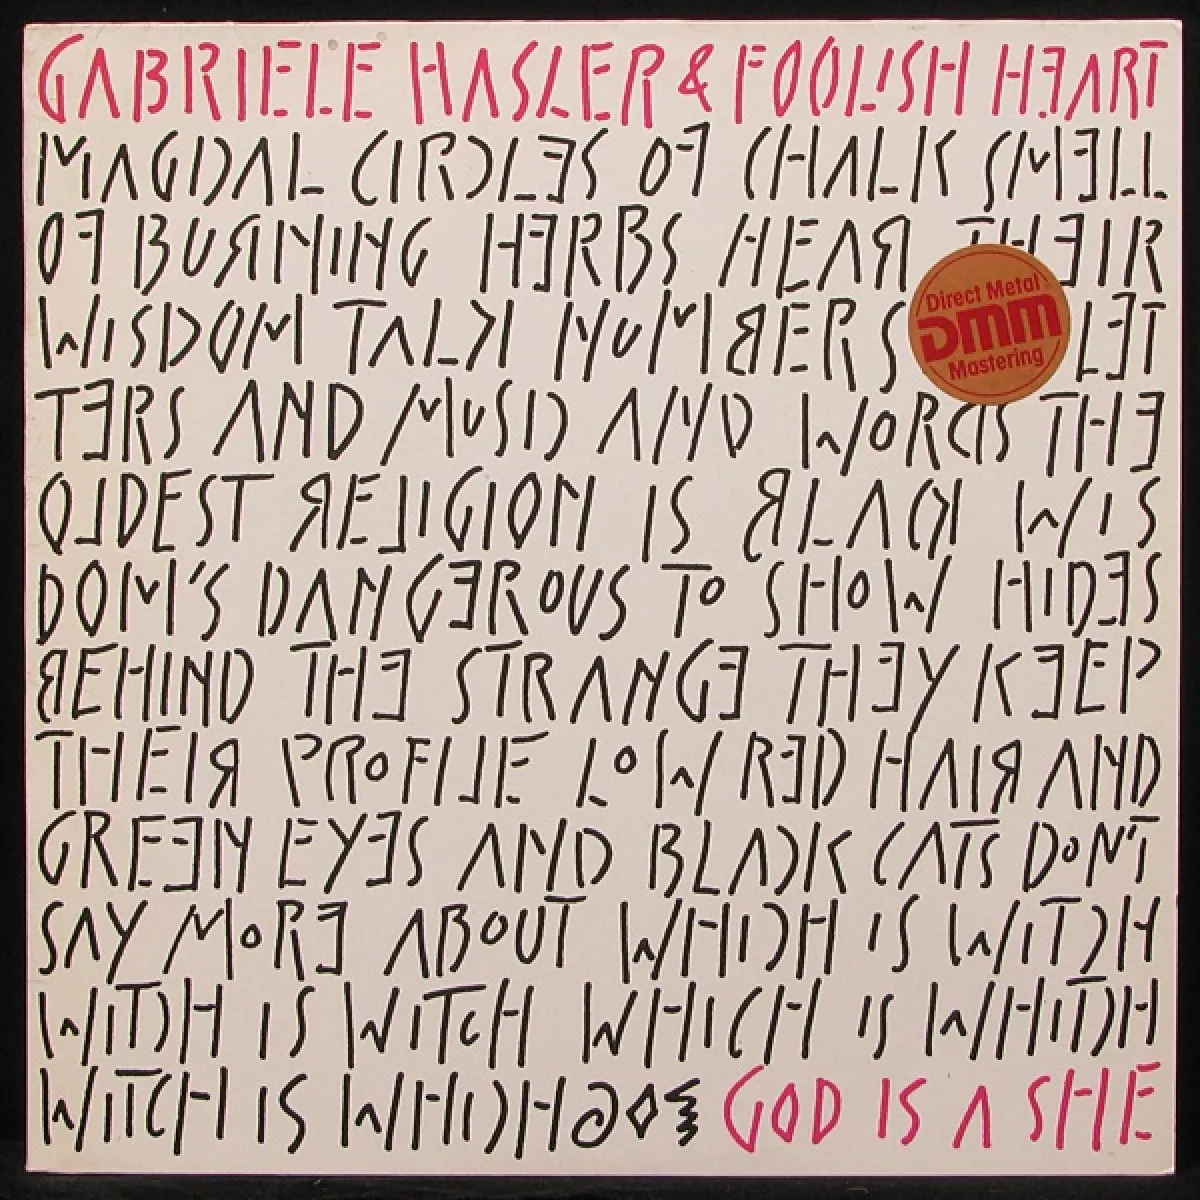 GABRIELE HASLER & FOOLISH HEART
MAGICAL CIRCLES OF CHALK SMELL
OF BURNING HERBS HEAR THEIR
WISDOM TALK NUMBERS LET
TERS AND MUSIC AND WORDS THE
OLDEST RELIGION IS BLACK WIS
DOM'S DANGEROUS TO SHOW HIDES
BEHIND THE STRANGE THEY KEEP
THEIR PROFILE LOW RED HAIR AND
GREEN EYES AND BLACK CATS DON'T
SAY MORE ABOUT WHICH IS WITCH
WITCH IS WITCH WHICH IS WHITCH
WITCH IS WHICH GOD IS A SHE
Direct Metal
DMM
Mastering